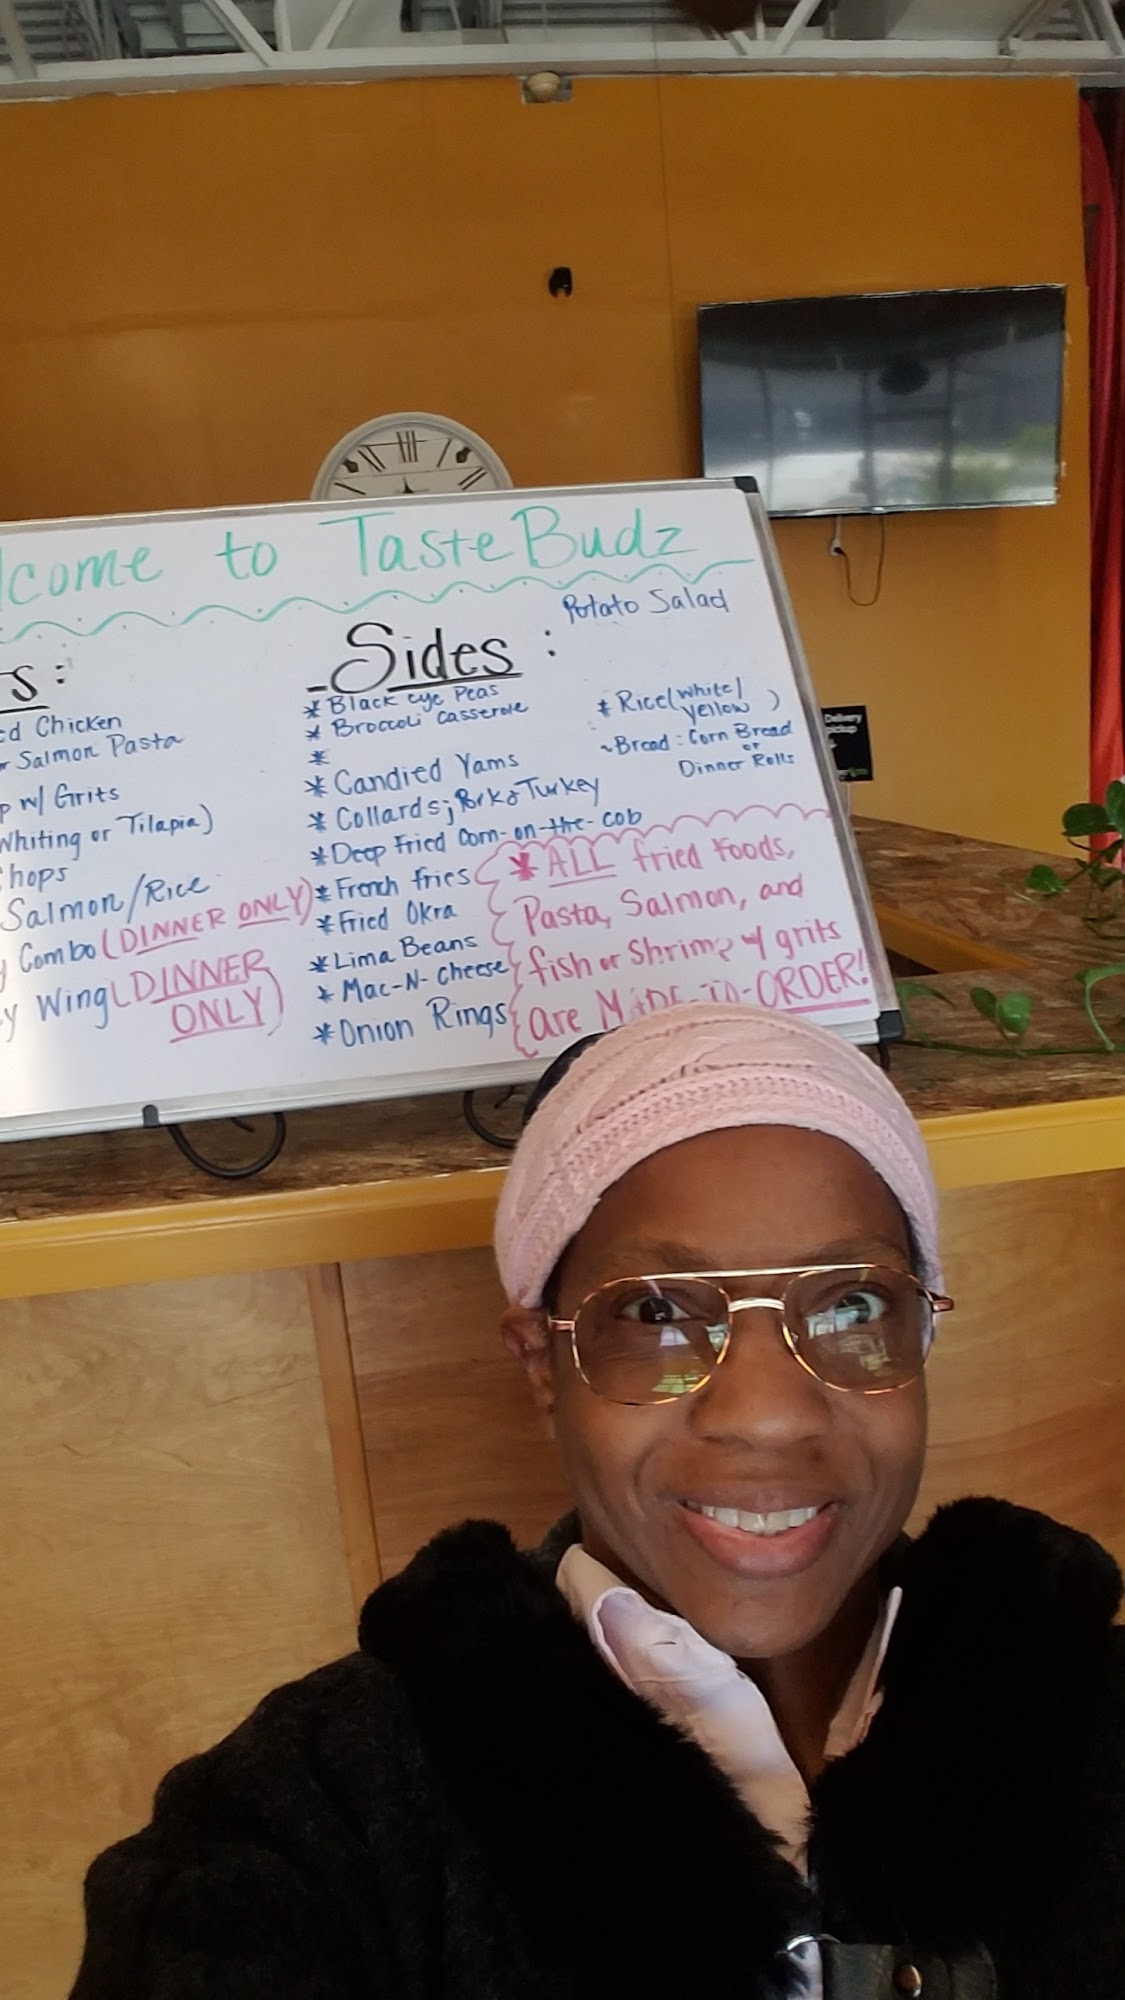 lcome to TasteBudz
s:
ed Chicken
or Salmon Pasta
p w/ Grits
Whiting or Tilapia)
hops
Salmon/Rice
y Combo (DINNER ONLY)
y Wing (DINNER
ONLY)
Sides :
Potato Salad
* Black eye Peas
* Broccoli casserole
*
* Candied Yams
* Collards; Pork & Turkey
* Deep Fried Corn-on-the-cob
* French fries
* Fried Okra
* Lima Beans
* Mac-N-Cheese
* Onion Rings
* Rice (white/
yellow )
~Bread: Corn Bread
or
Dinner Rolls
* ALL fried foods,
Pasta, Salmon, and
fish or shrimp w/ grits
are MADE-TO-ORDER!
Delivery